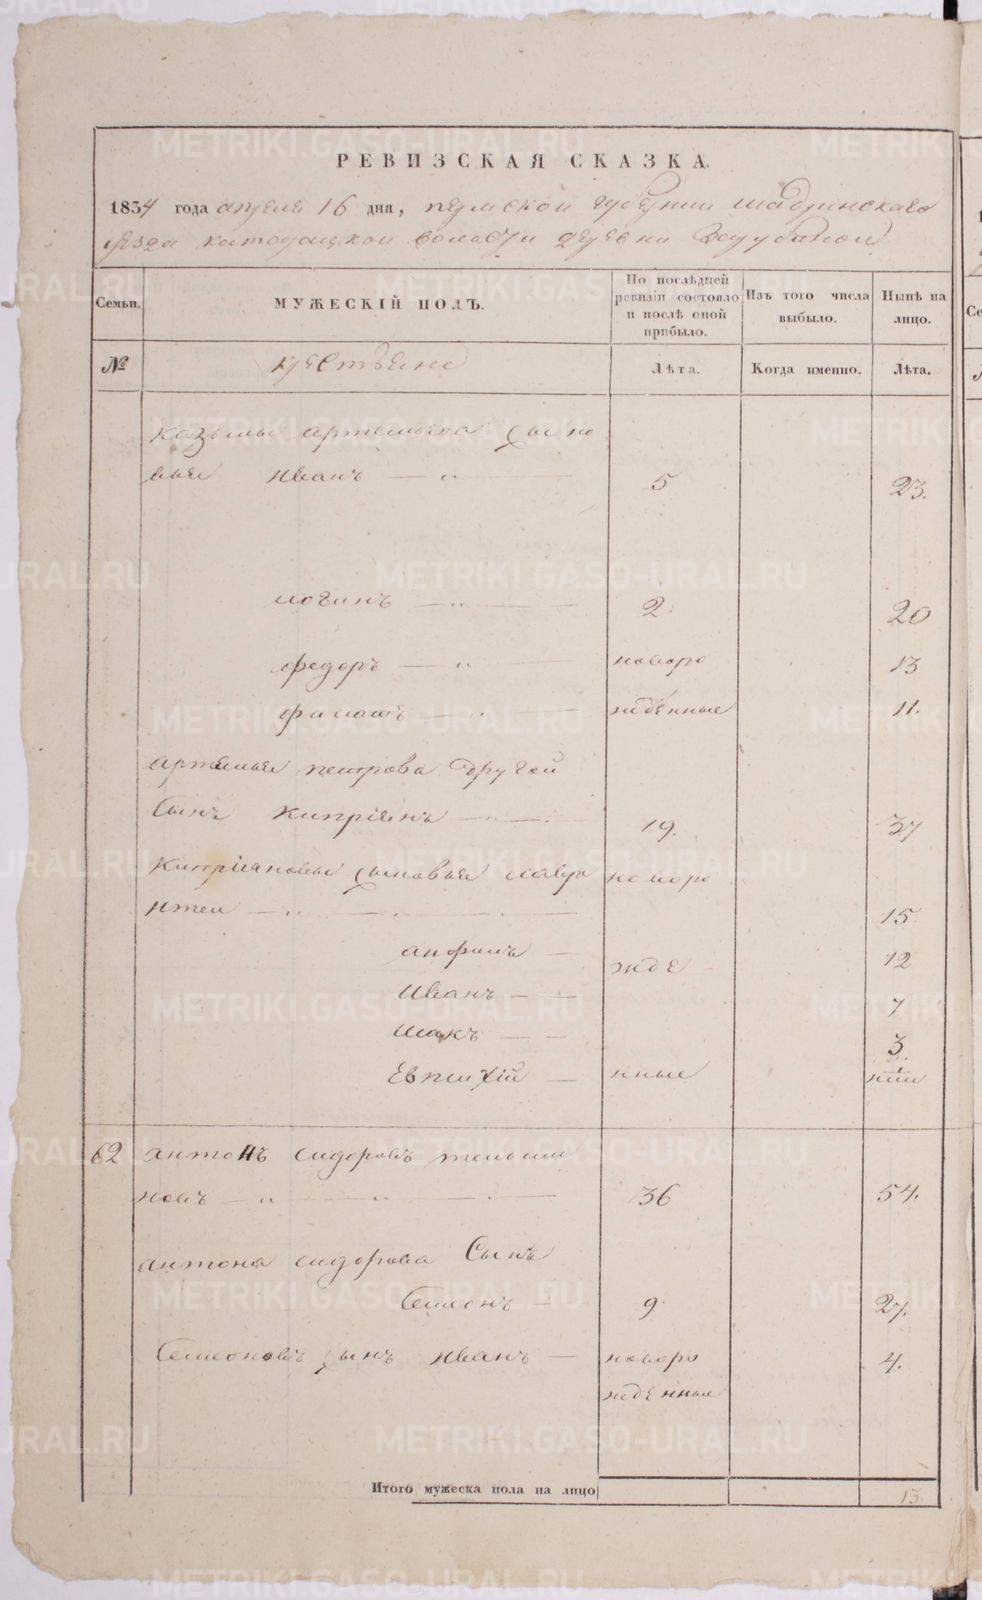 РЕВИЗСКАЯ СКАЗКА.
1834 года апреля 16 дня, пермской губернии шадринскаго
уезда волости деревни
Семьи. МУЖЕСКІЙ ПОЛЪ. По послѣдней ревизіи состояло и послѣ оной прибыло. Изъ того числа выбыло. Нынѣ на лицо.
№ крестьяне Лѣта. Когда именно. Лѣта.
козьмы артемьева сыно
вья иванъ — „ 5 23.
логинъ — „ 2. 20
федоръ — „ новоро 13
филатъ — „ жденные 11.
артемья петрова другой
сынъ Кипріянъ — 19. 37
Кипріяновы сыновья лавре новоро
нтеи — „ 15
анфимъ — жде 12
Иванъ — 7
исакъ — 3
Евпсихій — нные
62 антонъ сидоровъ
новъ — „ 36 54.
антона сидорова Сынъ
Семенъ — 9 27.
Семеновъ сынъ иванъ — новоро 4.
жденные
Итого мужеска пола на лицо 13.
METRIKI.GASO-URAL.RU